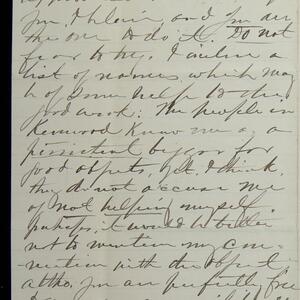 you, I know, and you are
the one to do it. Do not
fear to try. I enclose a
list of names, which may
be of some help to the
good work. The people in
Kenwood know me as a
persistent beggar for
good objects, yet, I think,
they do not accuse me
of not helping myself
perhaps, it would be better
not to mention my con-
nection with the object
altho, you are perfectly free